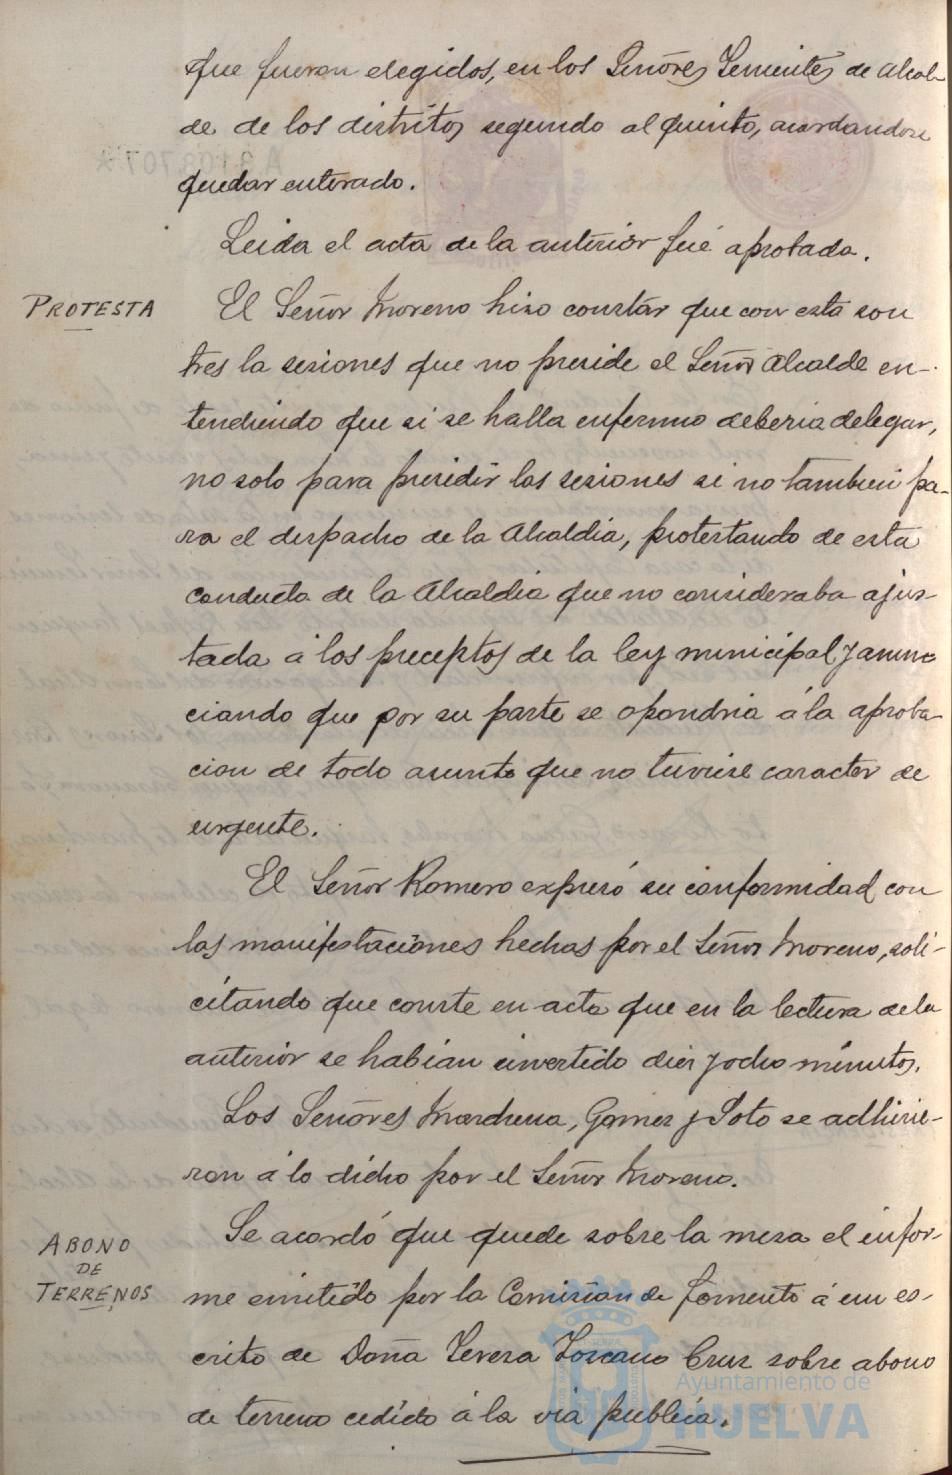 que fueron elegidos, en los Señores Tenientes de Alcal-
de de los distritos segundo al quinto, acordandose
quedar enterado.
Leida el acta de la anterior fué aprobada.
PROTESTA
El Señor Moreno hizo constar que con esta son
tres la sesiones que no preside el Señor Alcalde en-
tendiendo que si se halla enfermo deberia delegar,
no solo para presidir las sesiones si no tambien pa-
ra el despacho de la Alcaldia, protestando de esta
conducta de la Alcaldia que no consideraba ajus-
tada á los preceptos de la ley municipal y anun-
ciando que por su parte se opondria á la aproba-
cion de todo asunto que no tuviese caracter de
urgente.
El Señor Romero expresó su conformidad con
las manifestaciones hechas por el Señor Moreno, soli-
citando que conste en acta que en la lectura de la
anterior se habian invertido diez y ocho minutos.
Los Señores Marchena, Gomez y Soto se adhirie-
ron á lo dicho por el Señor Moreno.
ABONO
DE
TERRENOS
Se acordó que quede sobre la mesa el infor-
me emitido por la Comision de Fomento á un es-
crito de Doña Teresa Toscano Cruz sobre abono
de terreno cedido á la via publica.
Ayuntamiento de
HUELVA